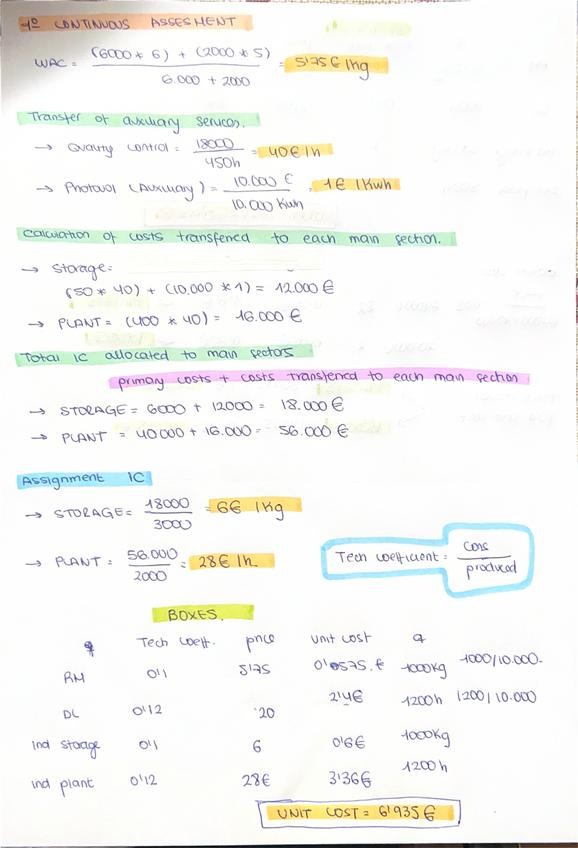 1º CONTINUOUS ASSESMENT
WAC = (6000 * 6) + (2000 * 5) / 6.000 + 2000 = 5'75 € /kg
Transfer of auxiliary services.
→ Quality control = 18000 / 450h = 40 € /h
→ Photovol (Auxiliary) = 10.000 € / 10.000 Kwh = 1 € /Kwh
Calculation of costs transferred to each main section.
→ Storage =
(50 * 40) + (10,000 * 1) = 12000 €
→ PLANT = (400 * 40) = 16.000 €
Total IC allocated to main sectors
primary costs + costs transfered to each main section
→ STORAGE = 6000 + 12000 = 18.000 €
→ PLANT = 40000 + 16.000 = 56.000 €
Assignment IC
→ STORAGE = 18000 / 3000 = 6€ /Kg
→ PLANT = 56.000 / 2000 = 28€ /h.
Tech coefficient = cons / produced
BOXES.
q Tech coeff. price unit cost q
RM 0'1 5'75 0'575.€ 1000Kg 1000/10.000.
DL 0'12 20 2'4€ 1200h 1200/10.000
ind storage 0'1 6 0'6€ 1000Kg
ind plant 0'12 28€ 3'36€ 1200h
UNIT COST = 6'935€